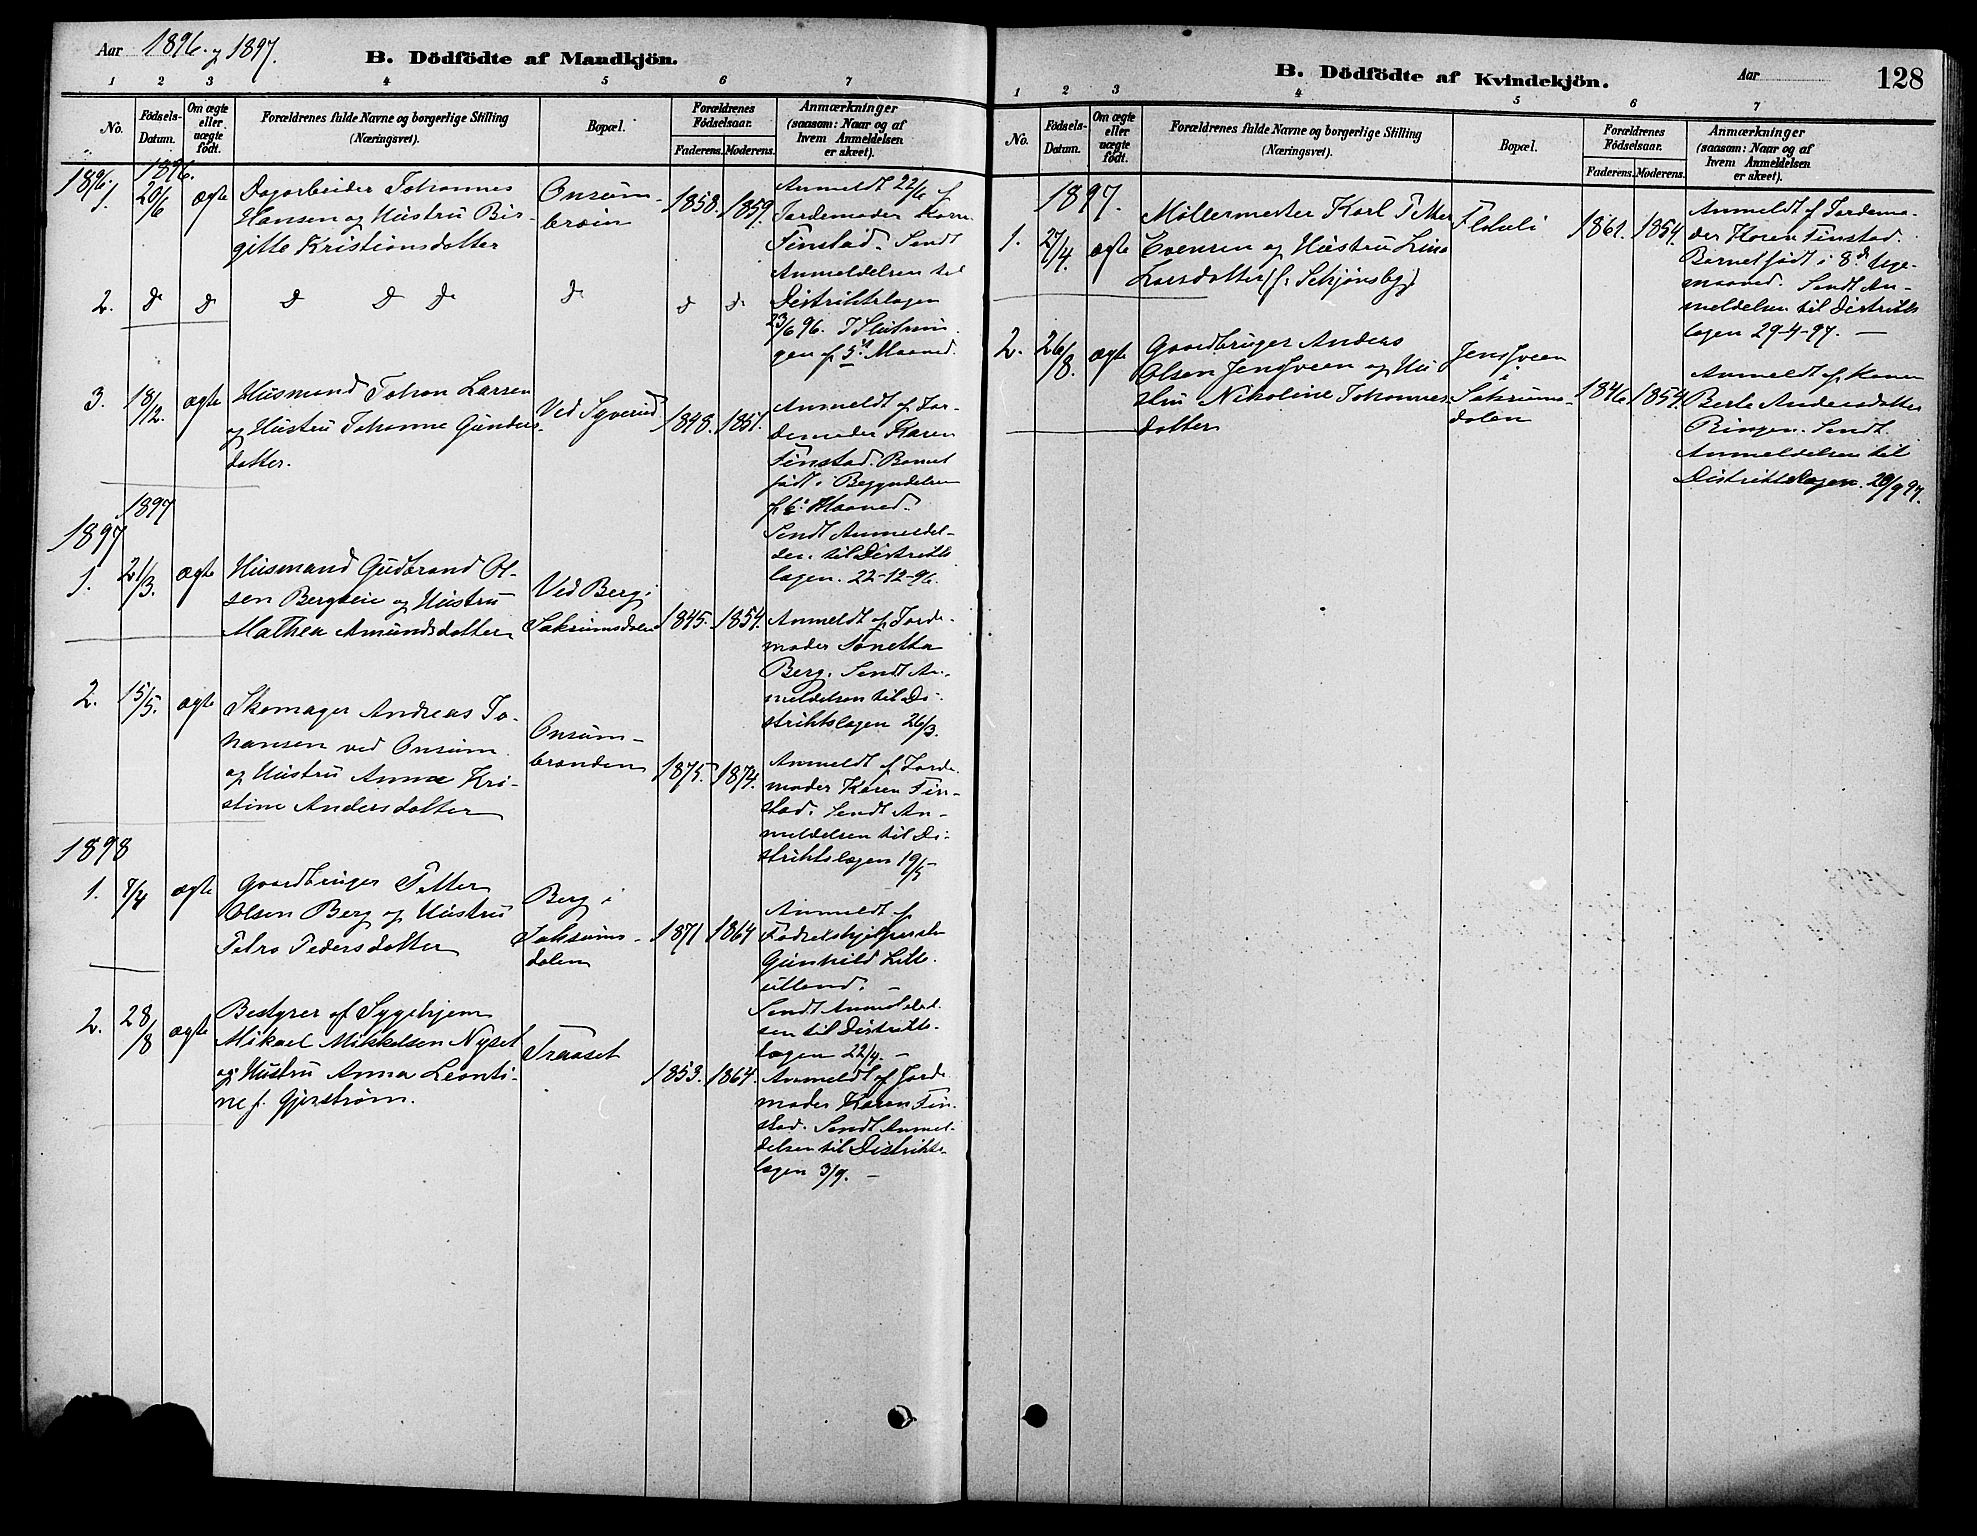 Aar 1896 og 1897.
B. Dödfödte af Mandkjön.
1 2 3 4 5 6 7
No.
Födsels-
Datum.
Om ægte
eller
uægte
födt.
Forældrenes fulde Navne og borgerlige Stilling
(Næringsvei).
Bopæl.
Forældrenes
Födselsaar.
Faderens. Moderens.
Anmærkninger
(saasom: Naar og af
hvem Anmeldelsen
er skeet).
1896.
1896.
1. 20/6 ægte
Dagarbeider Johannes
Hansen og Hustru Bir-
gitte Kristiansdatter
Onsum-
1858. 1859.
Anmeldt 22/6 af
Jordemoder Karen
Finstad. Sendt
Anmeldelsen til
Distriktslægen
23/6 96. I Slutnin-
gen af 5te Maaned.
2. do do do do do do do do
3. 18/12. ægte
Husmand Johan Larsen
og Hustru Johanne Gunders-
datter.
Ved Syverud
1848. 1851.
Anmeldt af Jor-
demoder Karen
Finstad. Barnet
født i Begyndelsen
Maaned.
Sendt Anmeldel-
sen til Distrikts
lægen. 22-12-96.
1897
1897
1. 21/3. ægte
Husmand Gudbrand Ol-
sen Bergseie og Hustru
Mathea Amundsdatter
Ved Berg i
Saksumsdalen
1845. 1854.
Anmeldt af Jorde-
moder
Berg. Sendt An-
meldelsen til Di-
striktslægen 26/3.
2. 15/5. ægte
Skomager Andreas Jo-
hansen ved Onsum
og Hustru Anna Kri-
stine Andersdatter
Onsum-
branden
1875. 1874.
Anmeldt af Jorde-
moder Karen Fin-
stad. Sendt An-
meldelsen til Di-
striktslægen 19/5
1898
1. 7/4 ægte
Gaardbruger Petter
Olsen Berg og Hustru
Petra Pedersdatter
Berg i
Saksums-
dalen
1871 1864
Anmeldt af
Fødselshjelpersken
Gunhild Lille-
Sendt Anmeldel-
sen til Distrikts-
lægen 22/4. –
2. 28/8 ægte
Bestyrer af Sygehjem
Mikael Mikkelsen Nyset
og Hustru Anna Leonti-
ne f. Gjerstrøm.
Traaset
1853. 1864.
Anmeldt af Jorde
moder Karen Fin-
stad. Sendt Anmel-
delsen til Distrikts-
lægen 3/9. –
B. Dödfödte af Kvindekjön.
Aar
128
1 2 3 4 5 6 7
No.
Födsels-
Datum.
Om ægte
eller
uægte
födt.
Forældrenes fulde Navne og borgerlige Stilling
(Næringsvei).
Bopæl.
Forældrenes
Födselsaar.
Faderens. Moderens.
Anmærkninger
(saasom: Naar og af
hvem Anmeldelsen
er skeet).
1897.
1. 27/4. ægte
Møllermester Karl Petter
Evensen og Hustru Lina
Larsdatter (f. Skjønsby)
1861. 1854.
Anmeldt af Jordemo-
der Karen Finstad.
Barnet født i 8de
maaned. Sendt An-
meldelsen til Distrikts
lægen 29-4-97. –
2. 26/8. ægte
Gaardbruger Anders
Olsen Jensveen og Hu-
stru Nikoline Johannes
datter
Jensveen
i
Saksums-
dalen
1846. 1854.
Anmeldt af Konen
Berte Andersdatter
Ringen. Sendt
Anmeldelsen til
Distriktslægen. 20/9 97.